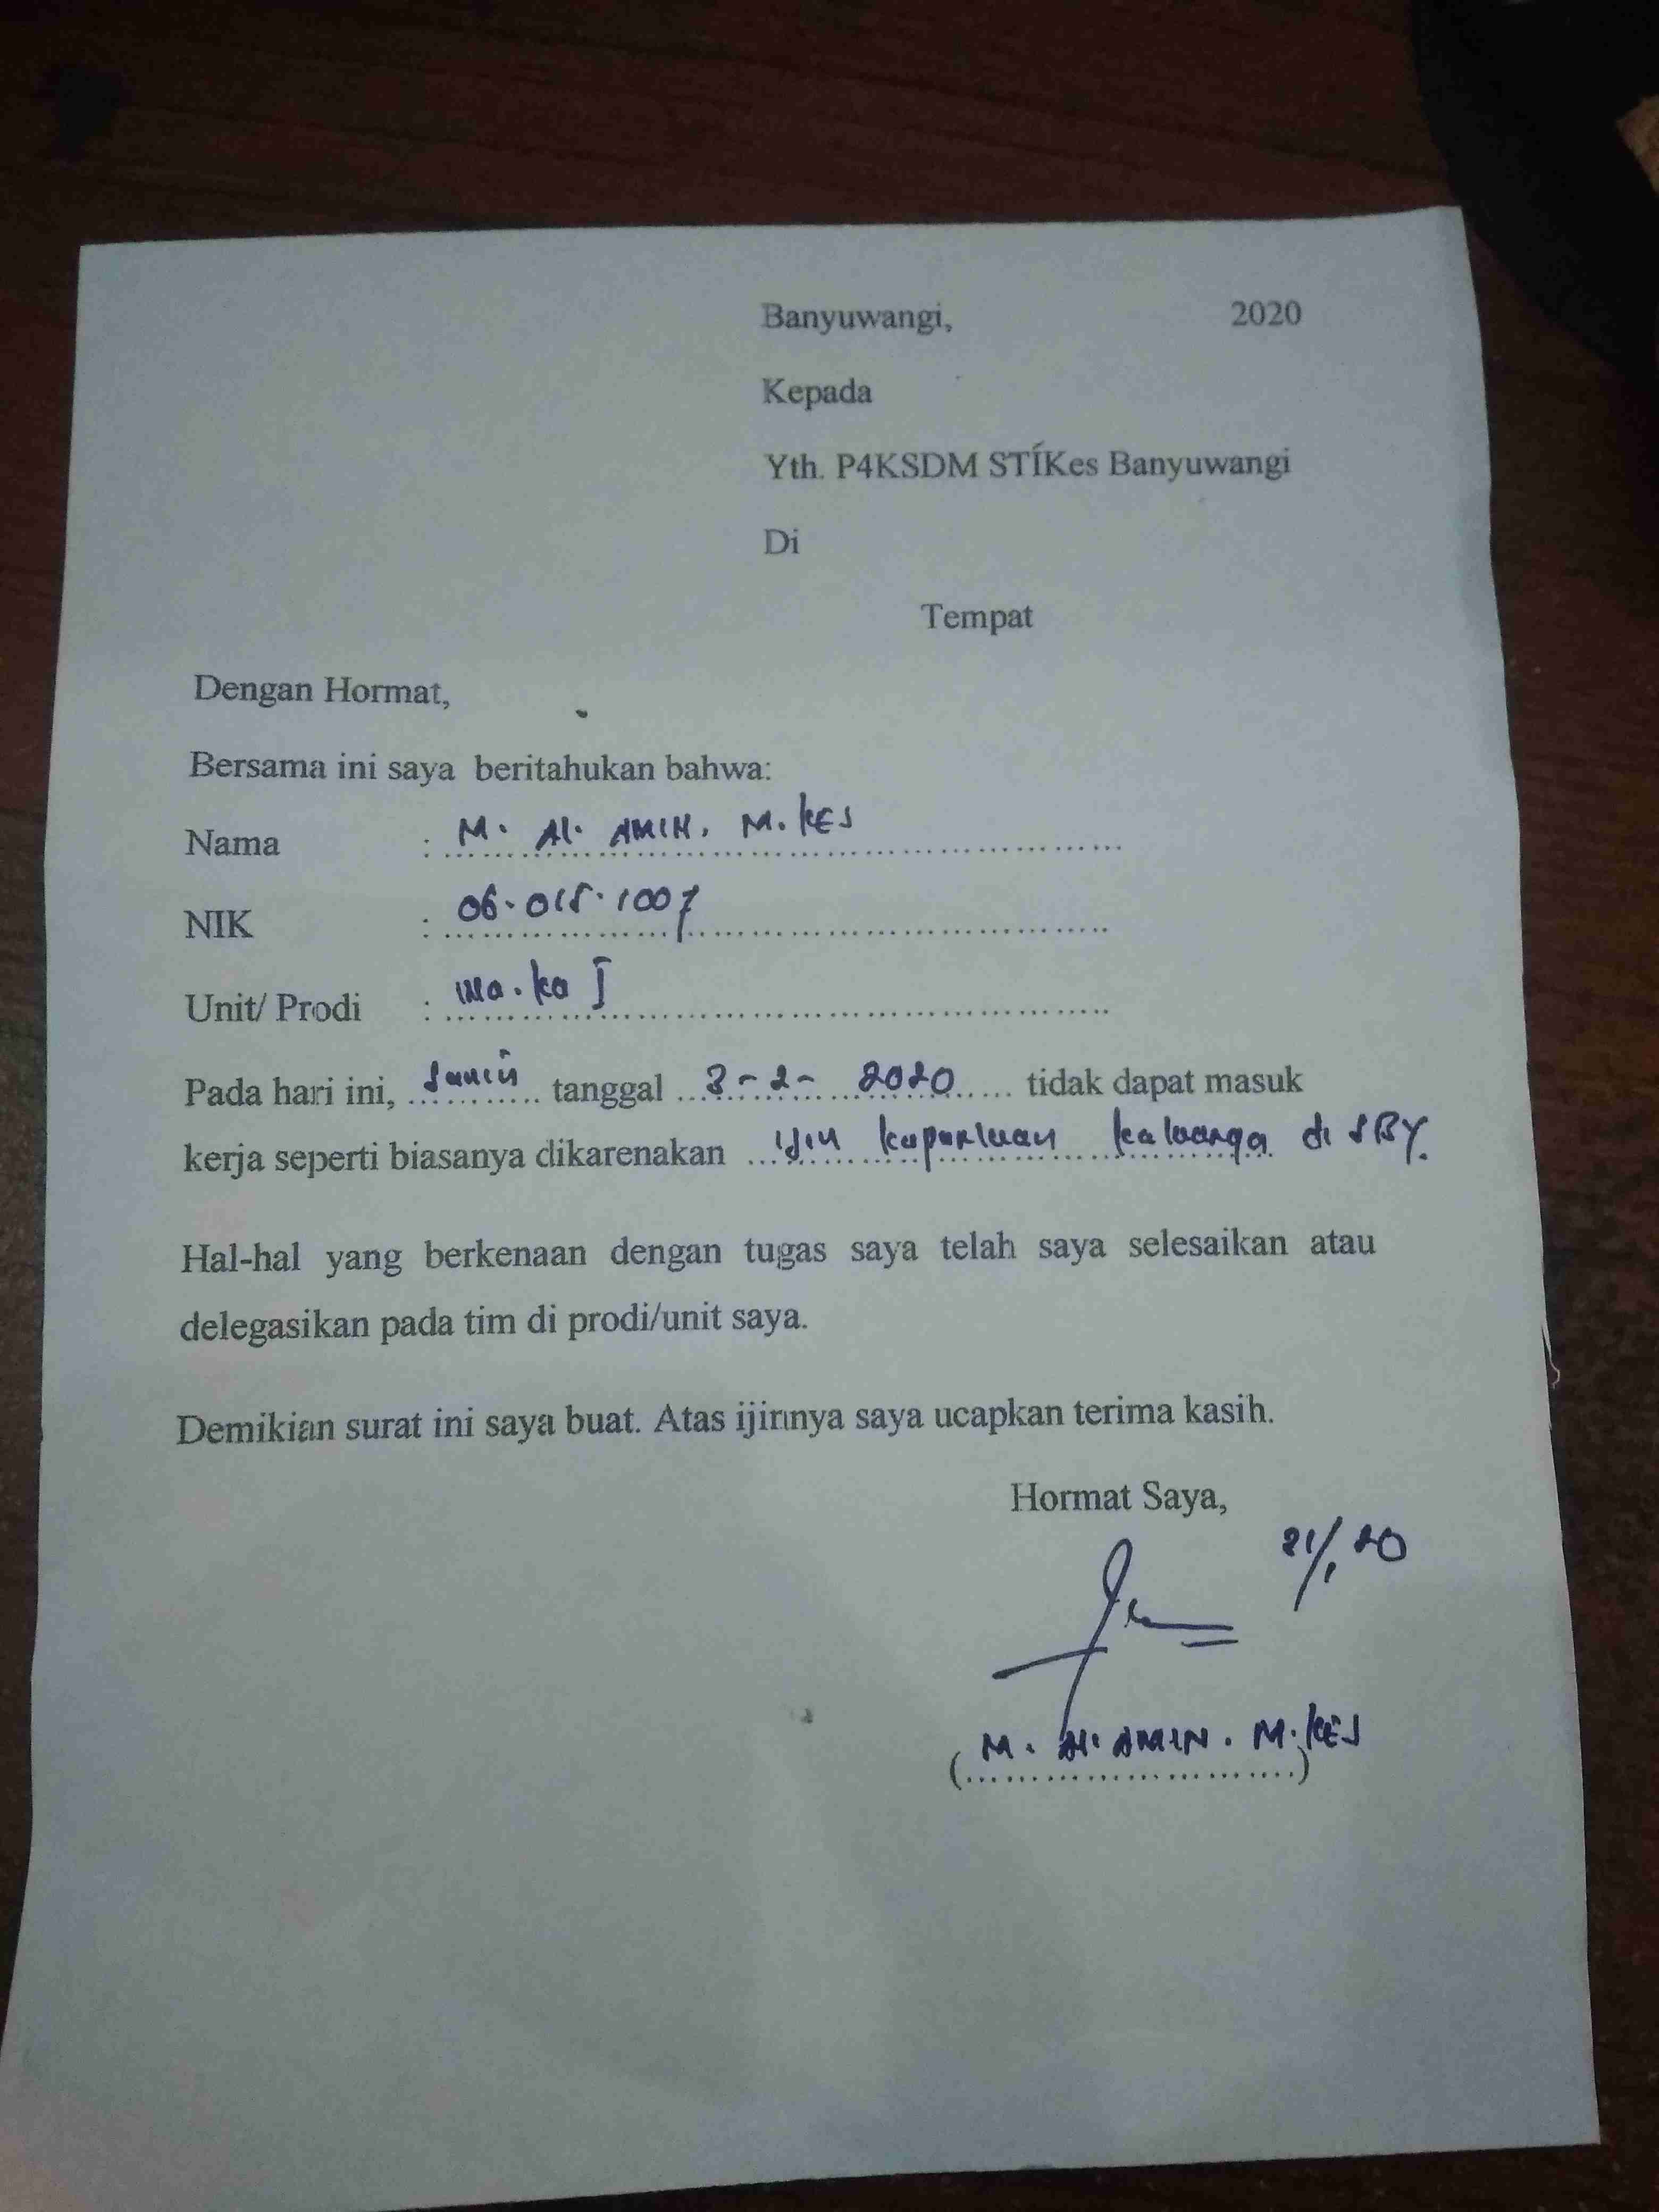 Banyuwangi, 2020
Kepada
Yth. P4KSDM STIKes Banyuwangi
Di
Tempat
Dengan Hormat,
Bersama ini saya beritahukan bahwa:
Nama : M. Al. AMIN. M.KES
NIK : 06.015.1007
Unit/ Prodi : Wa.ka I
Pada hari ini, Senin tanggal 3-2-2020 tidak dapat masuk
kerja seperti biasanya dikarenakan ijin keperluan keluarga di SBY.
Hal-hal yang berkenaan dengan tugas saya telah saya selesaikan atau
delegasikan pada tim di prodi/unit saya.
Demikian surat ini saya buat. Atas ijinnya saya ucapkan terima kasih.
Hormat Saya,
31/1 20
(M. Al. AMIN. M.KES)